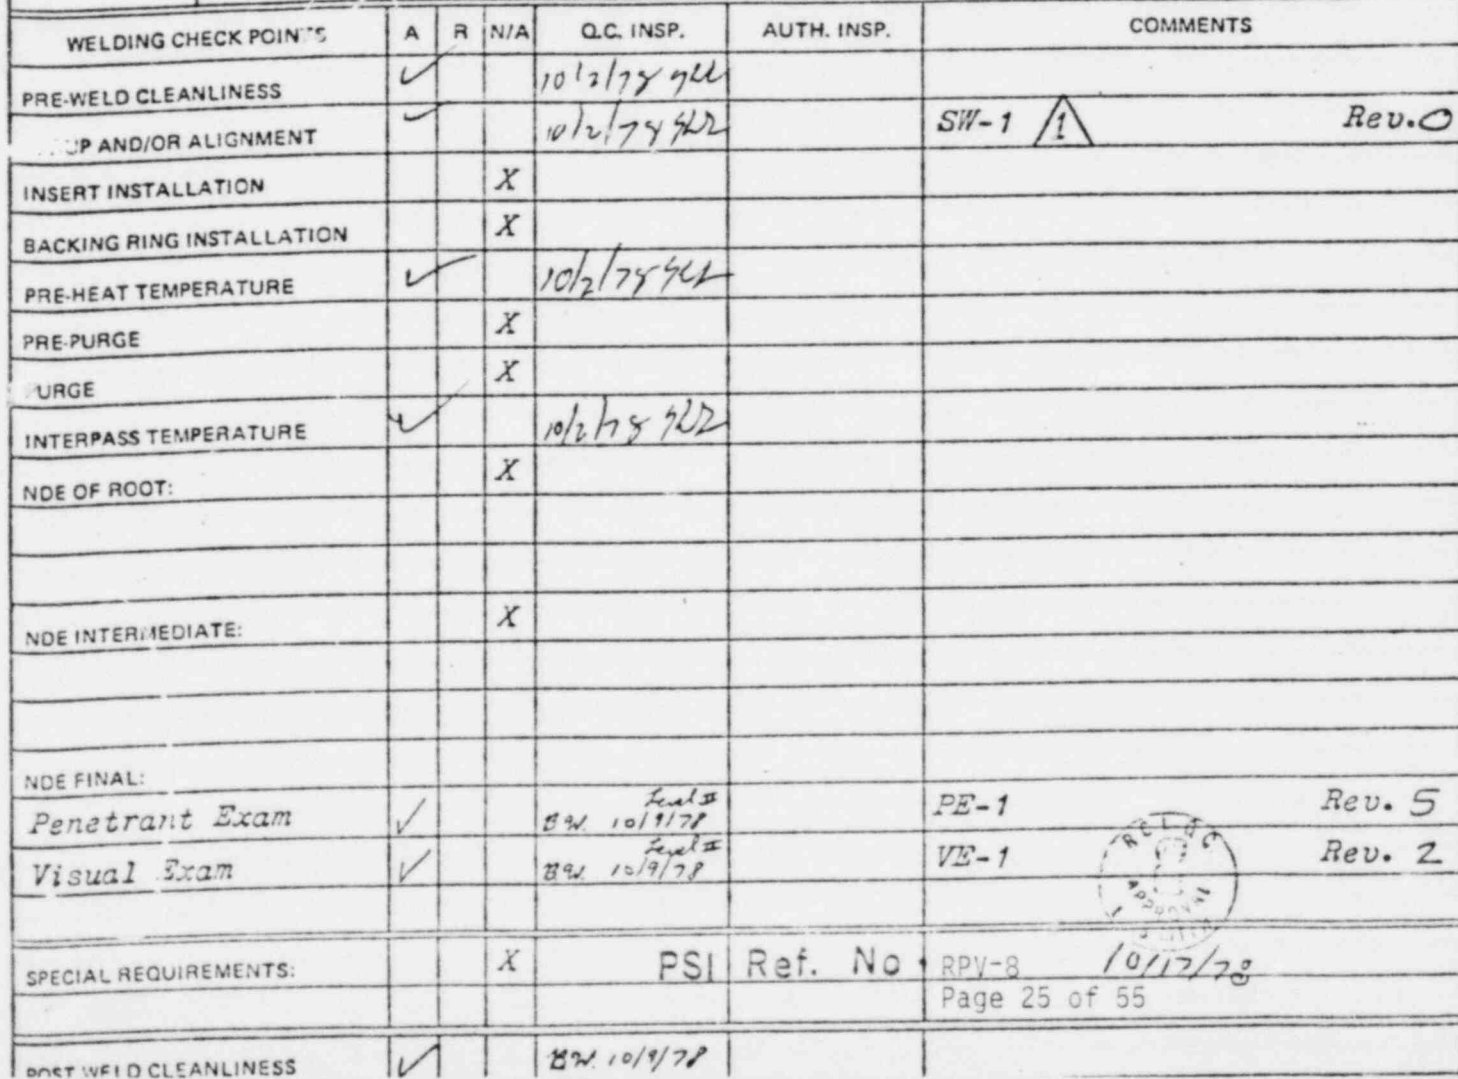 WELDING CHECK POINTS A R N/A Q.C. INSP. AUTH. INSP. COMMENTS
PRE-WELD CLEANLINESS ✓ 10/2/78
UP AND/OR ALIGNMENT ✓ 10/2/78 SW-1 1 Rev. 0
INSERT INSTALLATION X
BACKING RING INSTALLATION X
PRE-HEAT TEMPERATURE ✓ 10/2/78
PRE-PURGE X
URGE X
INTERPASS TEMPERATURE ✓ 10/2/78
NDE OF ROOT: X
NDE INTERMEDIATE: X
NDE FINAL:
Level II
Penetrant Exam ✓ BW. 10/9/78 PE-1 Rev. 5
Level II
Visual Exam ✓ BW. 10/9/78 VE-1 Rev. 2
SPECIAL REQUIREMENTS: X PSI Ref. No. RPV-8 10/17/78
Page 25 of 55
POST WELD CLEANLINESS ✓ BW. 10/9/78